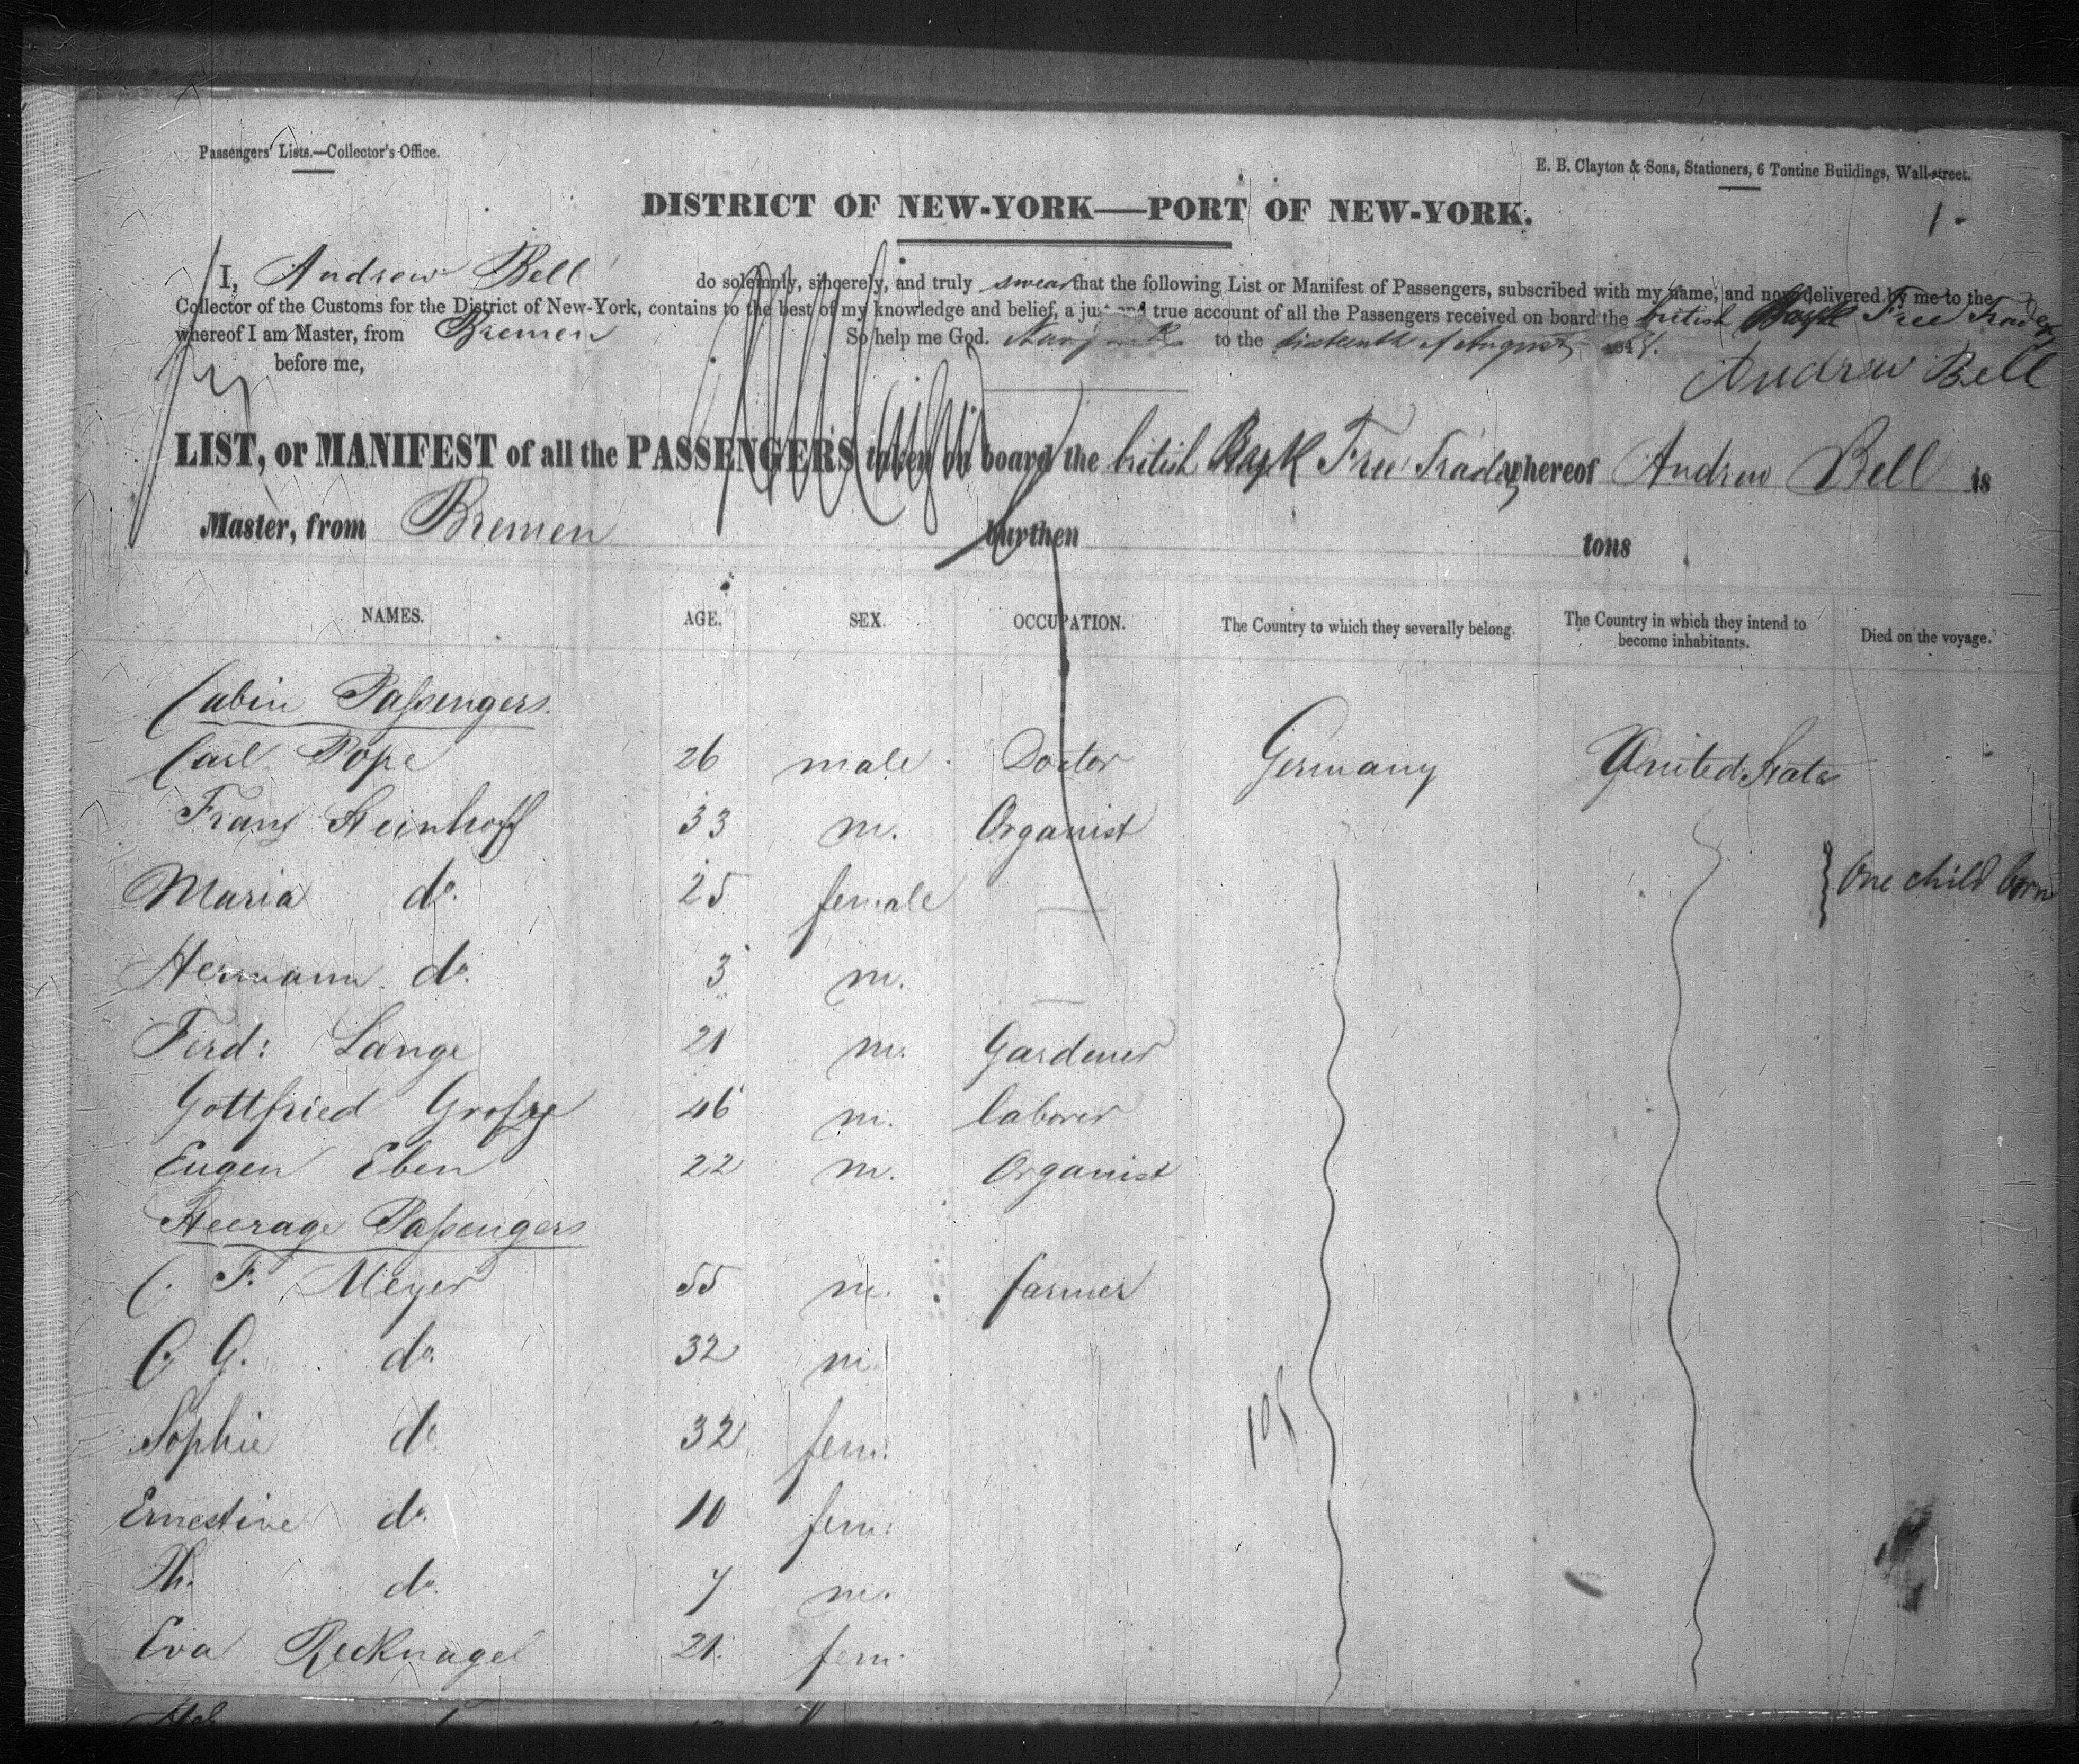 Passengers' Lists.—Collector's Office.
E. B. Clayton & Sons, Stationers, 6 Tontine Buildings, Wall-street.
DISTRICT OF NEW-YORK—PORT OF NEW-YORK.
1.
I, Andrew Bell do solemnly, sincerely, and truly swear that the following List or Manifest of Passengers, subscribed with my name, and now delivered by me to the
Collector of the Customs for the District of New-York, contains to the best of my knowledge and belief, a just and true account of all the Passengers received on board the british Bark Free Trader
whereof I am Master, from Bremen So help me God. to the sixteenth of August 184
before me, Andrew Bell
LIST, or MANIFEST of all the PASSENGERS taken on board the british Bark Free Trader whereof Andrew Bell is
Master, from Bremen burthen tons
NAMES. AGE. SEX. OCCUPATION. The Country to which they severally belong. The Country in which they intend to become inhabitants. Died on the voyage.
Cabin Passengers.
Carl Pope 26 male Doctor Germany United States
Franz Steinhoff 33 m. Organist
Maria do. 25 female — One child born
Hermann do. 3 m. —
Ferd: Lange 21 m. Gardener
Gottfried Grosze 46 m. laborer
Eugen Eben 22 m. Organist
Steerage Passengers
C. F. Meyer 55 m. farmer
C. G. do. 32 m.
Sophie do. 32 fem:
Ernestine do. 10 fem:
Th. do. 7 m.
Eva Recknagel 21. fem.